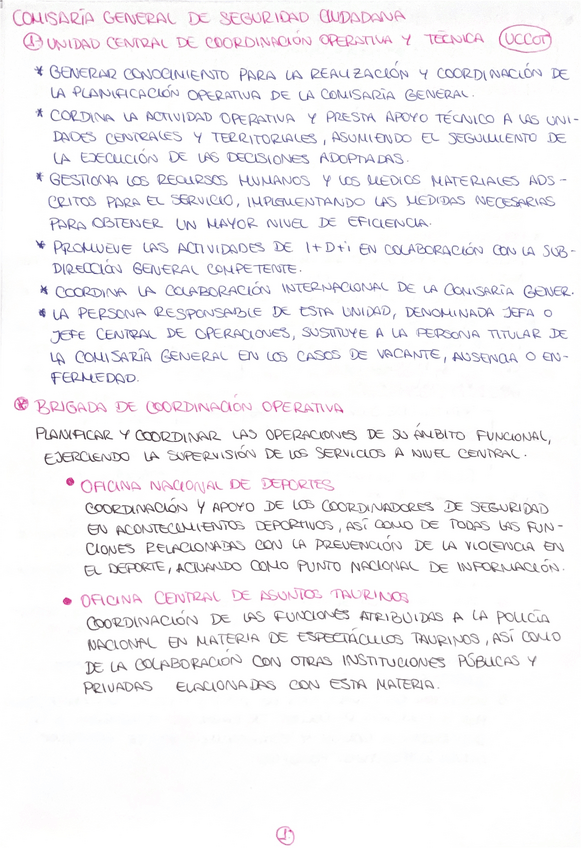 COMISARÍA GENERAL DE SEGURIDAD CIUDADANA
① UNIDAD CENTRAL DE COORDINACIÓN OPERATIVA Y TÉCNICA (UCCOT)
* GENERAR CONOCIMIENTO PARA LA REALIZACIÓN Y COORDINACIÓN DE
LA PLANIFICACIÓN OPERATIVA DE LA COMISARÍA GENERAL.
* CORDINA LA ACTIVIDAD OPERATIVA Y PRESTA APOYO TÉCNICO A LAS UNI-
DADES CENTRALES Y TERRITORIALES, ASUMIENDO EL SEGUIMIENTO DE
LA EJECUCIÓN DE LAS DECISIONES ADOPTADAS.
* GESTIONA LOS RECURSOS HUMANOS Y LOS MEDIOS MATERIALES ADS-
CRITOS PARA EL SERVICIO, IMPLEMENTANDO LAS MEDIDAS NECESARIAS
PARA OBTENER UN MAYOR NIVEL DE EFICIENCIA.
* PROMUEVE LAS ACTIVIDADES DE I+D+i EN COLABORACIÓN CON LA SUB-
DIRECCIÓN GENERAL COMPETENTE.
* COORDINA LA COLABORACIÓN INTERNACIONAL DE LA COMISARÍA GENER.
* LA PERSONA RESPONSABLE DE ESTA UNIDAD, DENOMINADA JEFA O
JEFE CENTRAL DE OPERACIONES, SUSTITUYE A LA PERSONA TITULAR DE
LA COMISARÍA GENERAL EN LOS CASOS DE VACANTE, AUSENCIA O EN-
FERMEDAD.
⊛ BRIGADA DE COORDINACIÓN OPERATIVA
PLANIFICAR Y COORDINAR LAS OPERACIONES DE SU ÁMBITO FUNCIONAL,
EJERCIENDO LA SUPERVISIÓN DE LOS SERVICIOS A NIVEL CENTRAL.
• OFICINA NACIONAL DE DEPORTES
COORDINACIÓN Y APOYO DE LOS COORDINADORES DE SEGURIDAD
EN ACONTECIMIENTOS DEPORTIVOS, ASÍ COMO DE TODAS LAS FUN-
CIONES RELACIONADAS CON LA PREVENCIÓN DE LA VIOLENCIA EN
EL DEPORTE, ACTUANDO COMO PUNTO NACIONAL DE INFORMACIÓN.
• OFICINA CENTRAL DE ASUNTOS TAURINOS
COORDINACIÓN DE LAS FUNCIONES ATRIBUIDAS A LA POLICÍA
NACIONAL EN MATERIA DE ESPECTÁCULOS TAURINOS, ASÍ COMO
DE LA COLABORACIÓN CON OTRAS INSTITUCIONES PÚBLICAS Y
PRIVADAS ELACIONADAS CON ESTA MATERIA.
①